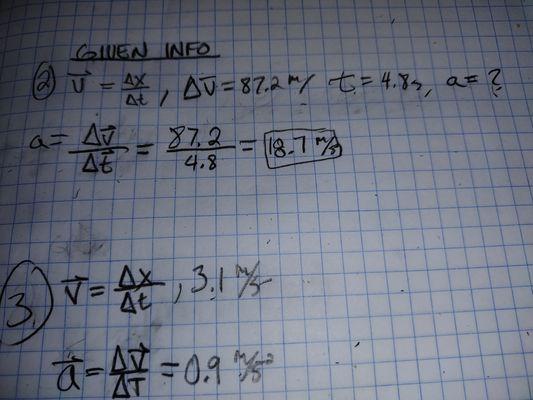 GIVEN INFO
② v⃗ = Δx/Δt , Δv⃗ = 87.2 m/ t = 4.8s, a = ?
a = Δv⃗/Δt⃗ = 87.2/4.8 = 18.7 m/s
3. v⃗ = Δx/Δt , 3.1 m/s
a⃗ = Δv⃗/ΔT = 0.9 m/s²